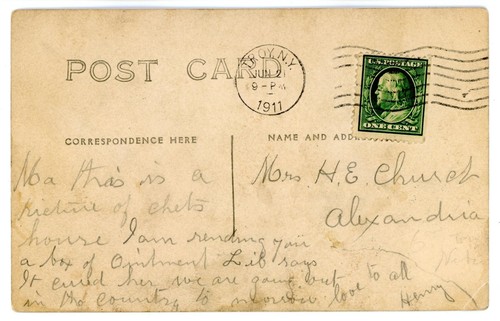 POST CARD
TROY, N.Y.
JUN 2
9-PM
1911
U.S. POSTAGE
ONE CENT
CORRESPONDENCE HERE
NAME AND ADD
Ma this is a
picture of chets
house I am sending you
a box of Ointment Lib says
It cured her we are going out
in the country to morrow love to all
Henry
Mrs H. E. Church
Alexandria